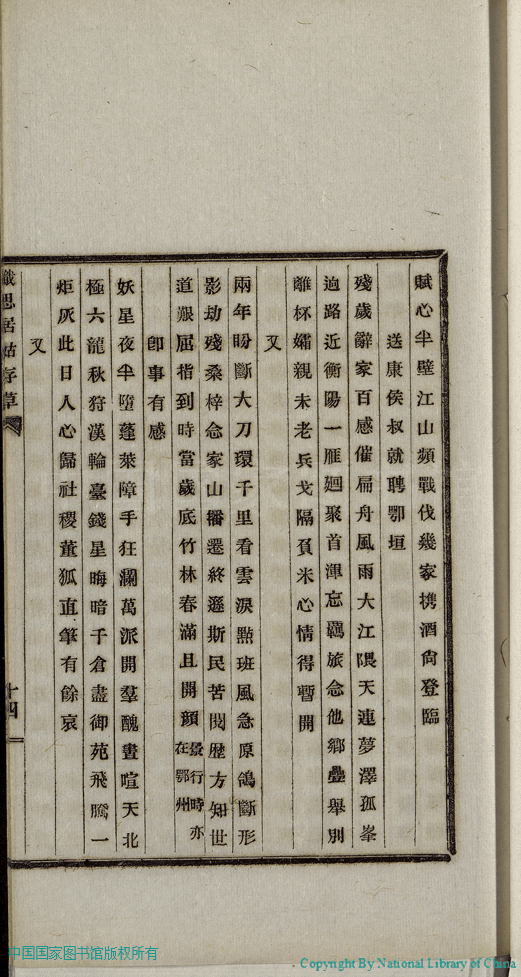 賦心半壁江山頻戰伐幾家携酒尙登臨
送康侯叔就聘鄂垣
殘歲辭家百感催扁舟風雨大江隈天連夢澤孤峯
逈路近衡陽一雁廻聚首渾忘羈旅念他鄉疊舉別
離杯孀親未老兵戈隔負米心情得暫開
又
兩年盼斷大刀環千里看雲淚點班風急原鴿斷形
影劫殘桑梓念家山播遷終遜斯民苦閱歷方知世
道艱屈指到時當歲底竹林春滿且開顏景行時亦在鄂州
卽事有感
妖星夜半墮蓬萊障手狂瀾萬派開羣醜晝喧天北
極六龍秋狩漢輪臺錢星晦暗千倉盡御苑飛騰一
炬灰此日人心歸社稷董狐直筆有餘哀
又
思居姑存草
十四
中国国家图书馆版权所有
Copyright By National Library of China